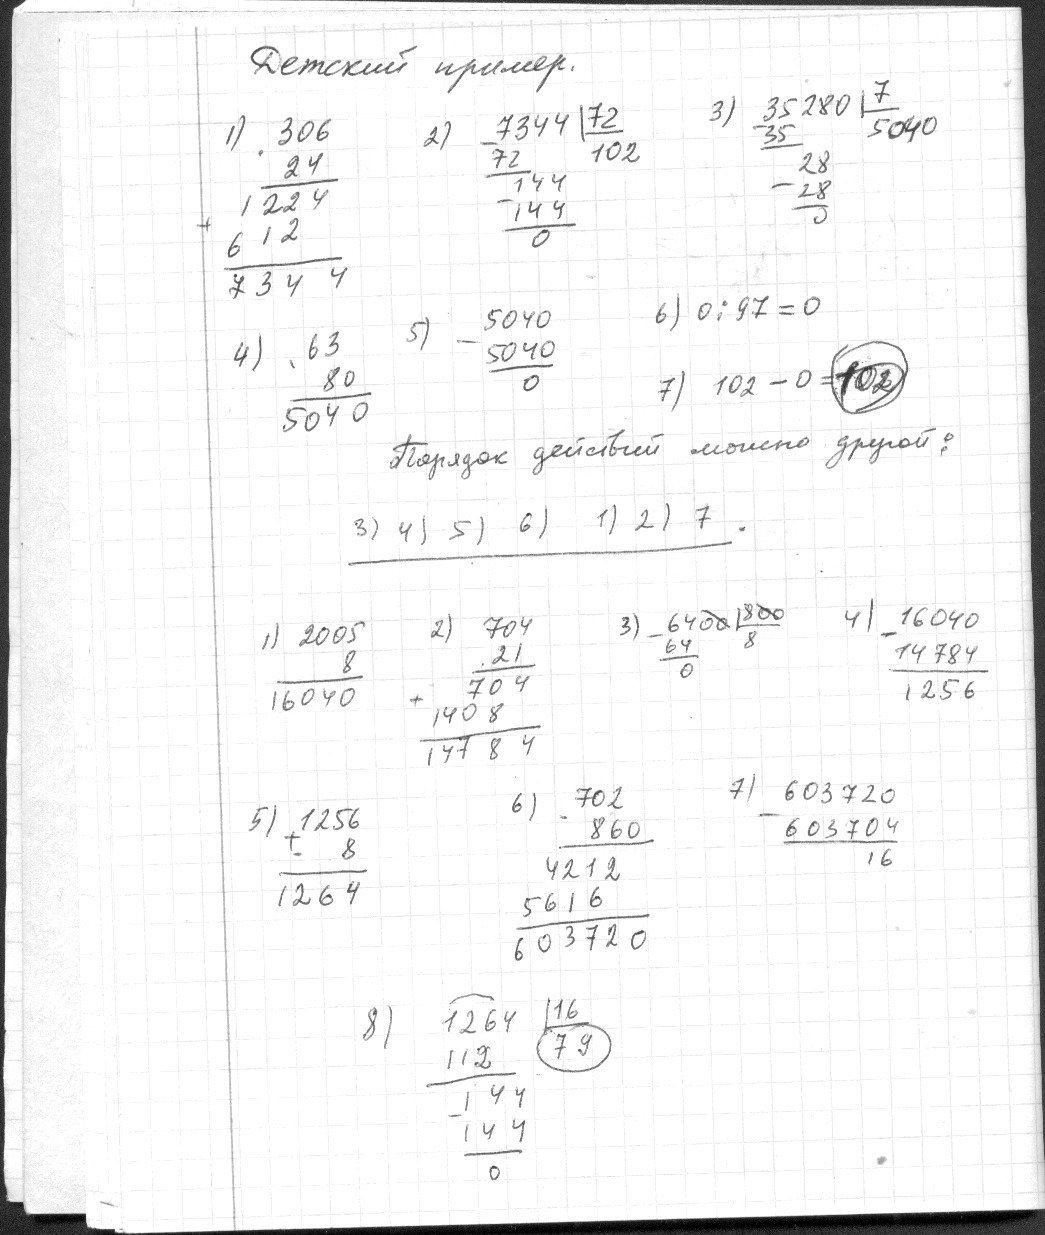 Детский пример.
1) 306
. 24
1224
+
612
7344
2) 7344 | 72
- 72 102
144
- 144
0
3) 35280 | 7
- 35 5040
28
- 28
0
4) . 63
80
5040
5) - 5040
5040
0
6) 0 : 97 = 0
7) 102 - 0 = 102
Порядок действий можно другой:
3) 4) 5) 6) 1) 2) 7.
1) 2005
8
16040
2) 704
. 21
704
+ 1408
14784
3) - 6400 | 800
64 8
0
4) - 16040
14784
1256
5) 1256
+ 8
1264
6) . 702
860
4212
5616
603720
7) - 603720
603704
16
8) 1264 | 16
112 79
- 144
144
0